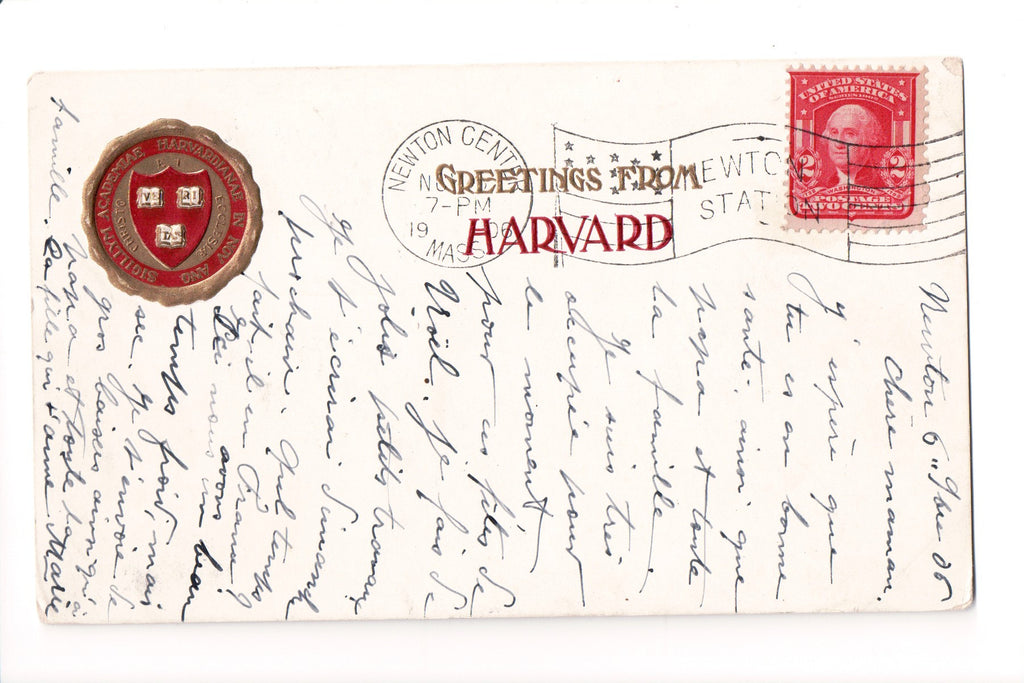 GREETINGS FROM
HARVARD
SIGILLVM ACADEMIAE HARVARDIANAE IN NOV ANG
VE RI
TAS
NEWTON CENT
7-PM
19 06
MASS
NEWTON
STAT N
UNITED STATES
OF AMERICA
SERIES 1902
2 2
WASHINGTON
POSTAGE
TWO CENTS
Newton 6" 9bre 06
Chère maman.
J'espère que
tu es en bonne
santé. ainsi que
papa et toute
la famille.
Je suis très
occupée pour
le moment
pour ces fêtes de
Noël. Je fais de
jolis petits travaux
Je t'écrirai dimanche
prochain. Quel temps
fait-il en France?
Ici nous avons un beau
temps froid, mais
sec. Je t'envoie de
gros baisers ainsi qu'à
papa et toute la
famille. Ta fille qui t'aime Marie